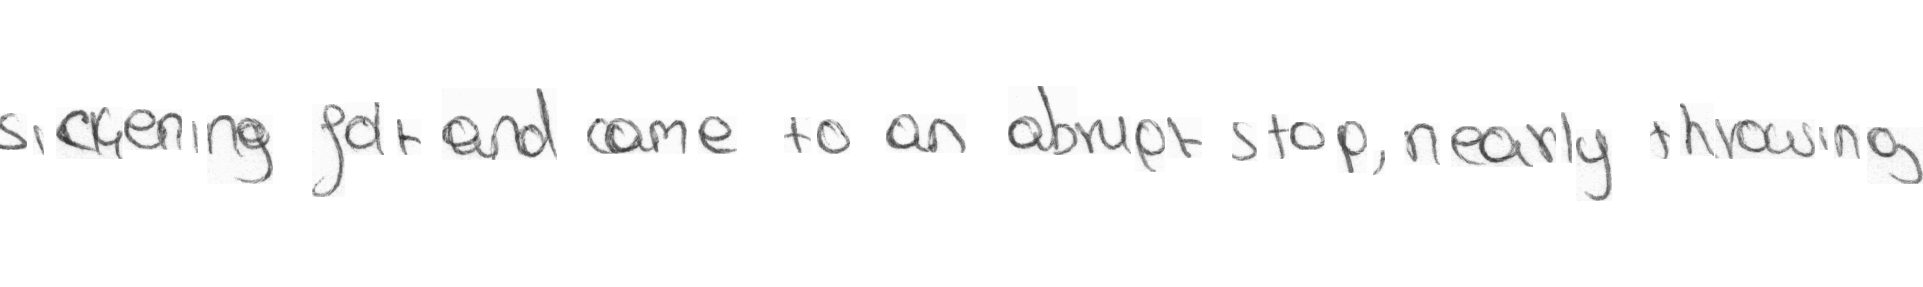 sickening jolt and came to an abrupt stop, nearly throwing